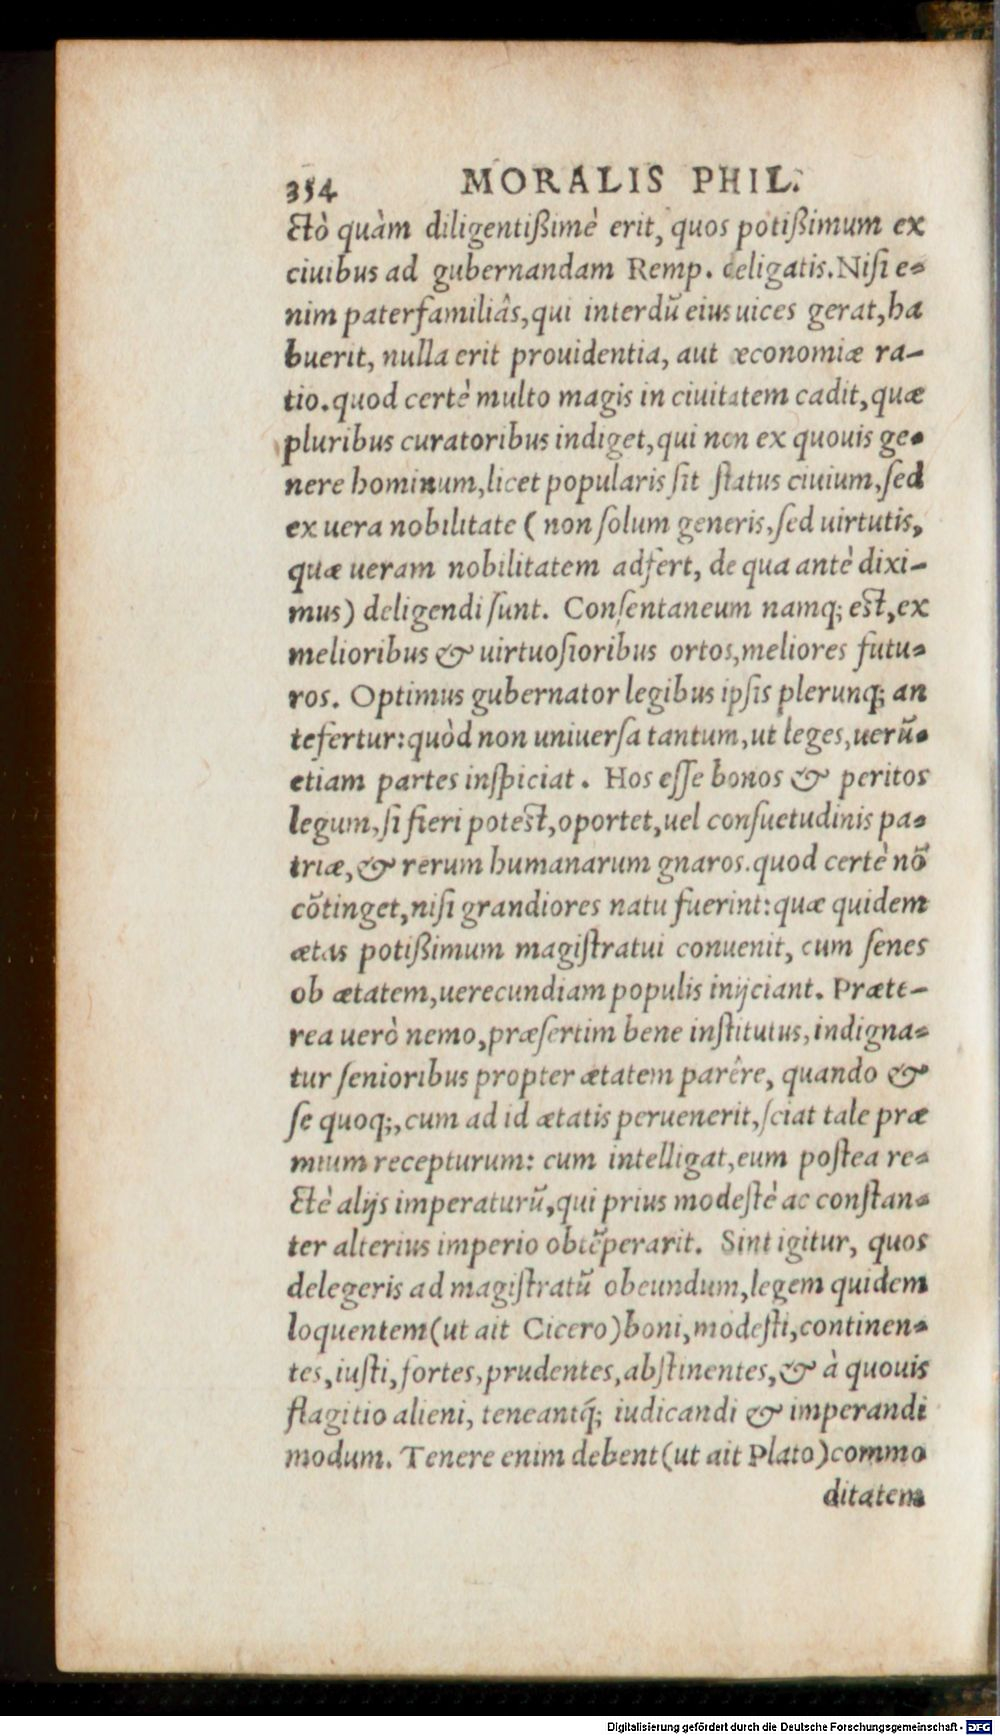 354 MORALIS PHIL.
ctò quàm diligentißimè erit, quos potißimum ex
ciuibus ad gubernandam Remp. deligatis. Nisi e-
nim paterfamiliâs, qui interdũ eius uices gerat, ha
buerit, nulla erit prouidentia, aut œconomiæ ra-
tio. quod certè multo magis in ciuitatem cadit, quæ
pluribus curatoribus indiget, qui non ex quouis ge-
nere hominum, licet popularis sit status ciuium, sed
ex uera nobilitate (non solum generis, sed uirtutis,
quæ ueram nobilitatem adfert, de qua antè dixi-
mus) deligendi sunt. Consentaneum namq; est, ex
melioribus & uirtuosioribus ortos, meliores futu-
ros. Optimus gubernator legibus ipsis plerunq; an
tefertur: quòd non uniuersa tantum, ut leges, uerũ-
etiam partes inspiciat. Hos esse bonos & peritos
legum, si fieri potest, oportet, uel consuetudinis pa-
triæ, & rerum humanarum gnaros. quod certè nõ
cõtinget, nisi grandiores natu fuerint: quæ quidem
ætas potißimum magistratui conuenit, cum senes
ob ætatem, uerecundiam populis inijciant. Præte-
rea uerò nemo, præsertim bene institutus, indigna-
tur senioribus propter ætatem parêre, quando &
se quoq;, cum ad id ætatis peruenerit, sciat tale præ
mium recepturum: cum intelligat, eum postea re-
ctè alijs imperaturũ, qui prius modestè ac constan-
ter alterius imperio obtẽperarit. Sint igitur, quos
delegeris ad magistratũ obeundum, legem quidem
loquentem (ut ait Cicero) boni, modesti, continen-
tes, iusti, fortes, prudentes, abstinentes, & à quouis
flagitio alieni, teneantq́; iudicandi & imperandi
modum. Tenere enim debent (ut ait Plato) commo
ditatem
Digitalisierung gefördert durch die Deutsche Forschungsgemeinschaft - DFG